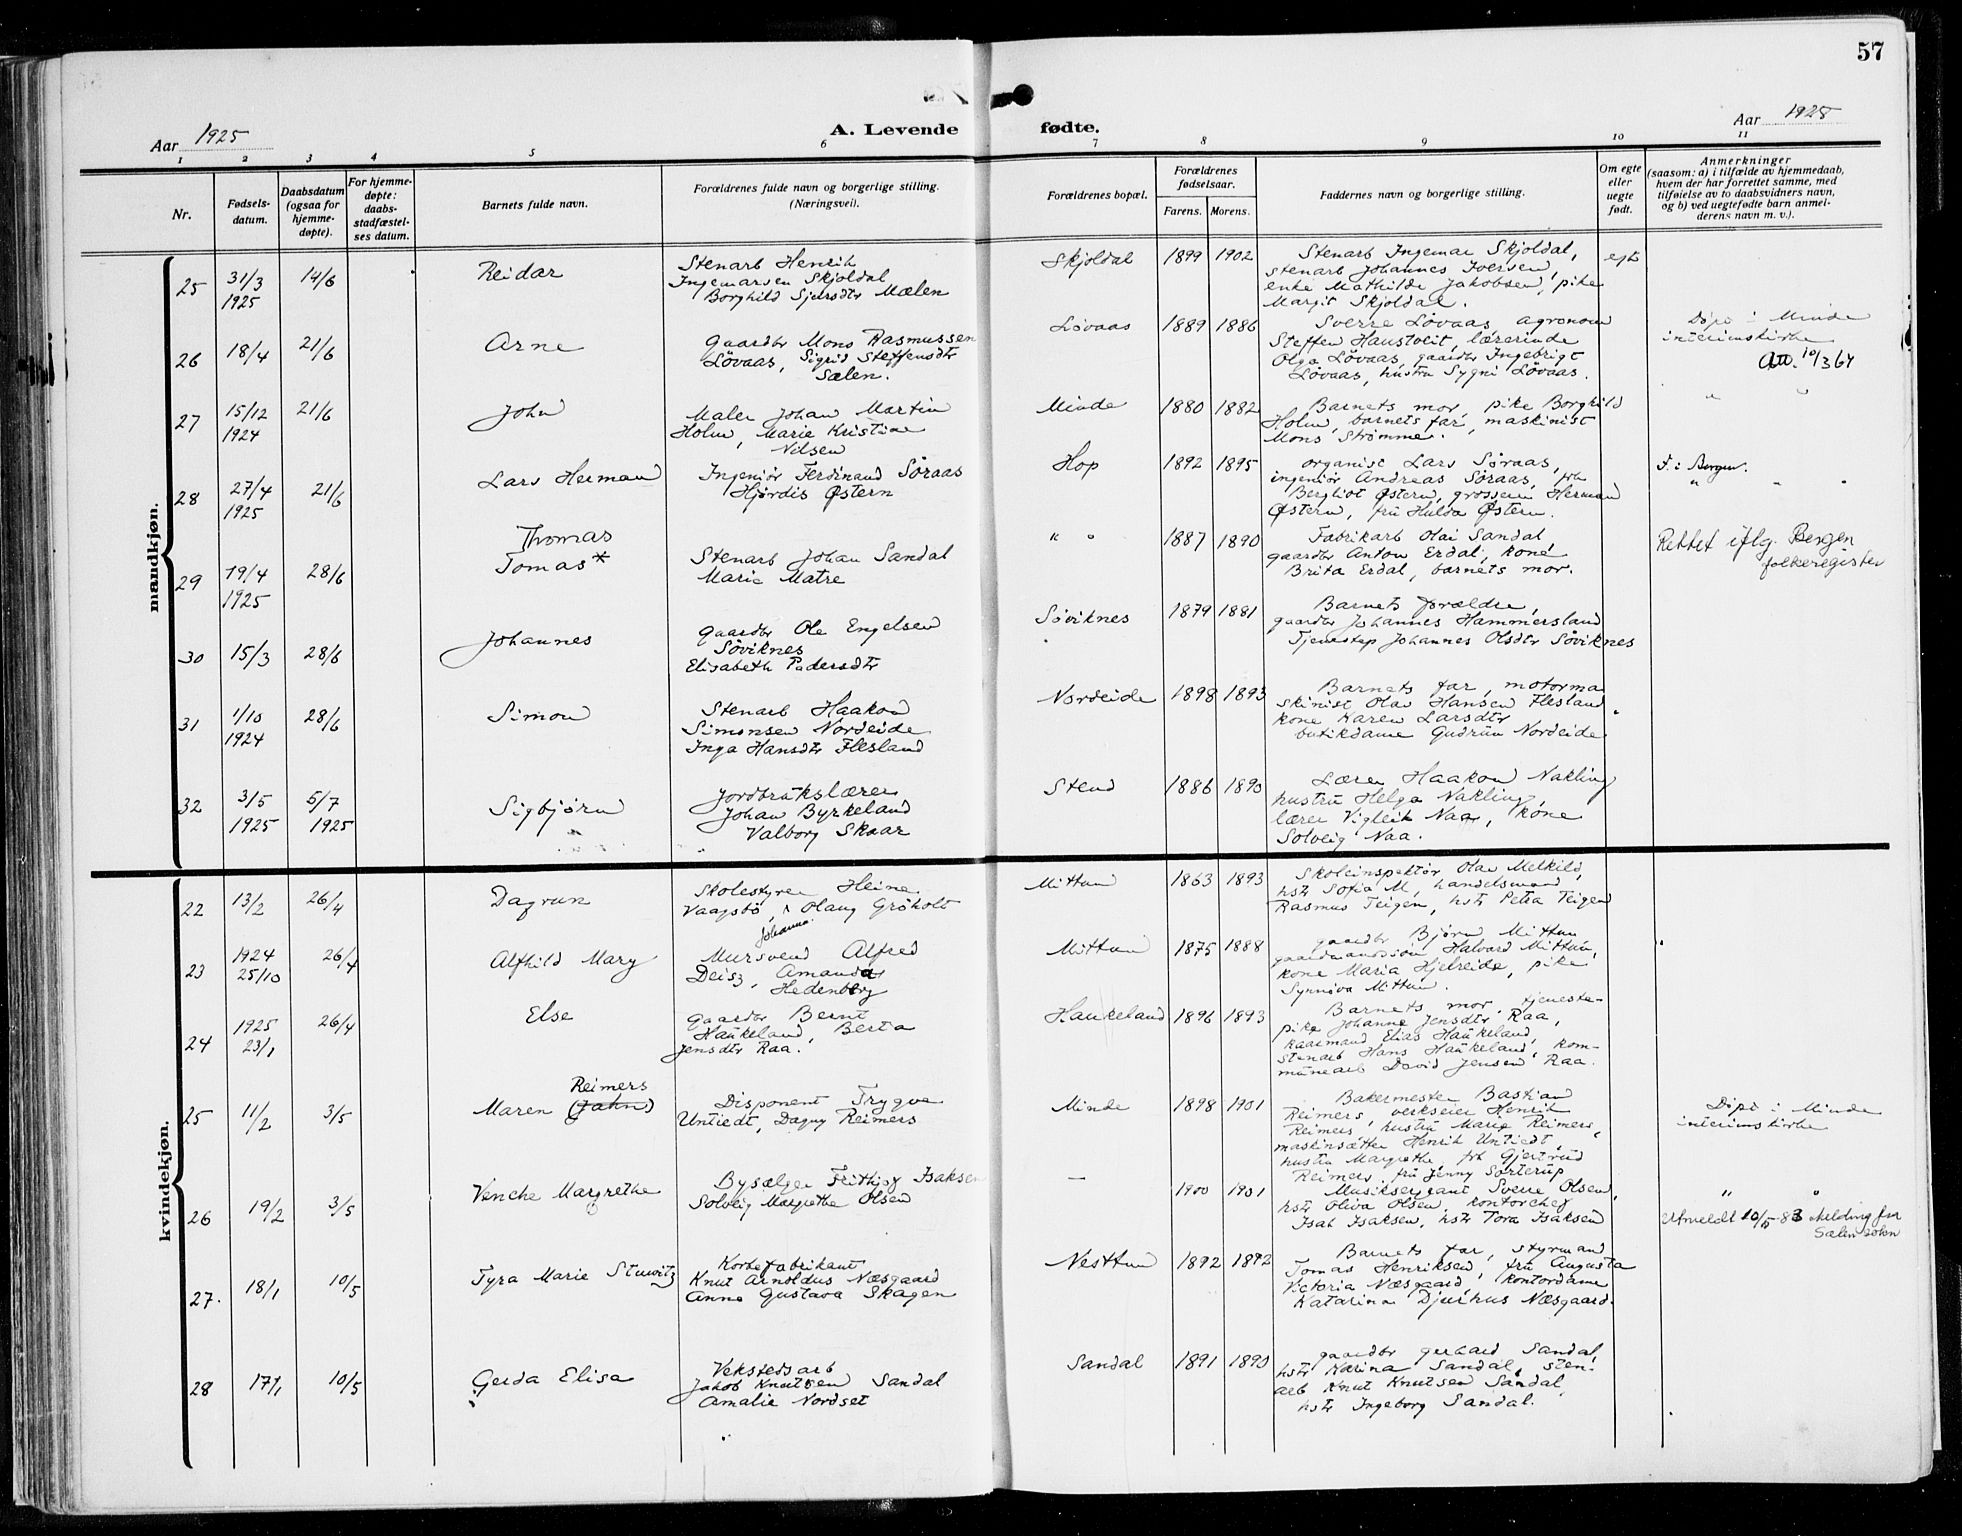 57
Aar 1925
A. Levende fødte.
Aar 1925
1 2 3 4 5 6 7 8 9 10 11
Nr.
Fødsels-
datum.
Daabsdatum
(ogsaa for
hjemme-
døpte).
For hjemme-
døpte:
daabs-
stadfæstel-
ses datum.
Barnets fulde navn.
Forældrenes fulde navn og borgerlige stilling.
(Næringsvei).
Forældrenes bopæl.
Forældrenes
fødselsaar.
Farens. Morens.
Faddernes navn og borgerlige stilling.
Om egte
eller
uegte
født.
Anmerkninger
(saasom: a) i tilfælde av hjemmedaab,
hvem der har forrettet samme, med
tilføielse av to daabsvidners navn,
og b) ved uegtefødte barn anmel-
derens navn m. v.).
mandkjøn.
25 31/3 1925 14/6 Reidar
Stenarb Henrik
Ingemarsen Skjoldal
Borghild Sjursdtr Mælen
Skjoldal 1899 1902
Stenarb Ingemar Skjoldal,
stenarb Johannes Iversen,
enke Mathilde Jakobsen, pike
Margit Skjoldal.
egte
26 18/4 21/6 Arne
Gaardbr Mons Rasmussen
Løvaas, Sigrid Steffensdtr
Sælen.
Løvaas 1889 1886
Sverre Løvaas agronom
Steffen Haustveit, lærerinde
Olga Løvaas, gaardbr Ingebrigt
Løvaas, hustru Sygni Løvaas.
Døpt i Minde
interimskirke
Att. 10/3 64
27 15/12 1924 21/6 John
Maler Johan Martin
Holm, Marie Kristine
Nilsen
Minde 1880 1882
Barnets mor, pike Borghild
Holm, barnets far, maskinist
Mons Strømme.
" "
28 27/4 1925 21/6 Lars Herman
Ingeniør Ferdinand Søraas
Hjørdis Østern
Hop 1892 1895
Organist Lars Søraas,
ingeniør Andreas Søraas, frk
Bergliot Østern, grosserer Herman
Østern, fru Hulda Østern.
F. i Bergen.
" " "
29 19/4 1925 28/6
Thomas
Tomas*
Stenarb Johan Sandal
Marie Matre
" " 1887 1890
Fabrikarb Olai Sandal,
gaardbr Anton Erdal, kone
Brita Erdal, barnets mor.
Rettet iflg. Bergen
folkeregister
30 15/3 28/6 Johannes
Gaardbr Ole Engelsen
Søviknes
Elisabeth Pedersdtr
Søviknes 1879 1881
Barnets forældre,
gaardbr Johannes Hammersland
Tjenestep Johannes Olsdtr Søviknes
31 1/10 1924 28/6 Simon
Stenarb Haakon
Simonsen Nordeide
Inga Hansdtr Flesland
Nordeide 1898 1893
Barnets far, motorma
skinist Olav Hansen Flesland
kone Karen Larsdtr
butikdame Gudrun Nordeide.
32 3/5 1925 5/7 1925 Sigbjørn
Jordbrukslærer
Johan Byrkeland
Valborg Skaar
Stend 1886 1890
Lærer Haakon Nakling
hustru Helga Nakling,
lærer Vigleik Naa, kone
Solveig Naa.
kvindekjøn.
22 13/2 26/4 Dagrun
Skolestyrer Heine
Vaagsbø, Olaug Grøholt
Johanna
Mittun 1863 1893
Skoleinspektør Olav Melkild,
hstr Sofia M, handelsmand
Rasmus Teigen, hstr Petra Teigen
23 1924 25/10 26/4 Alfhild Mary
Mursvend Alfred
Deisz, Amanda
Hedenberg
Mittun 1875 1888
gaardbr Bjørn Mittun
gaardmandssøn Halvard Mittun,
kone Maria Hjelreide, pike
Synnøva Mittun.
24 1925 23/1 26/4 Else
Gaardbr Bernt
Haukeland, Berta
Jensdtr Raa.
Haukeland 1896 1893
Barnets mor, tjeneste-
pike Johanne Jensdtr Raa,
kaarmand Elias Haukeland,
stenarb Hans Haukeland, kom-
munearb David Jensen Raa.
25 11/2 3/5
Reimers
Maren (Jahn)
Disponent Trygve
Untiedt, Dagny Reimers
Minde 1898 1901
Bakermester Bastian
Reimers, verkseier Henrik
Reimers, hustru Marie Reimers,
maskinsætter Henrik Untiedt,
hustru Margrethe, frk Gjertrud
Reimers, fru Jenny Sørterup
Døpt i Minde
interimskirke
26 19/2 3/5 Venche Margrethe
Bysælger Frithjof Isaksen
Solveig Margrethe Olsen
— 1900 1901
Musiksergeant Sverre Olsen,
hstr Oliva Olsen, kontorchef
Isak Isaksen, hstr Tora Isaksen
" "
Utmeldt 10/5-83 Melding fra
Sælen sokn
27. 18/1 10/5 Tyra Marie Stuwitz
Korkefabrikant
Knut Arnoldus Næsgaard
Anne Gustava Skagen
Nesttun 1892 1892
Barnets far, styrmand
Tomas Henriksen, fru Augusta
Victoria Næsgaard, kontordame
Katarina Djurhus Næsgaard.
28 17/1 10/5 Gerda Elisa
Vekstedsarb
Jakob Knutsen Sandal
Amalie Nordset
Sandal 1891 1890
gaardbr Gerhard Sandal,
hstr Karina Sandal, sten-
arb Knut Knutsen Sandal,
hstr Ingeborg Sandal.